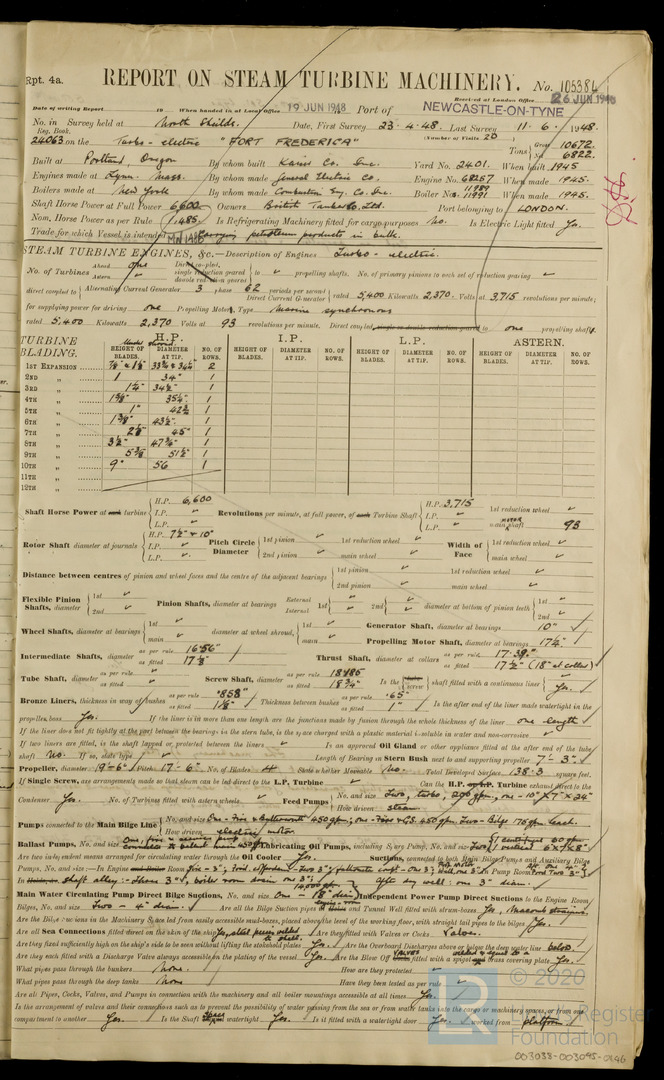 Rpt. 4a.
REPORT ON STEAM TURBINE MACHINERY. No. 105384
Date of writing Report 19 When handed in at Local Office 19 JUN 1948 Port of NEWCASTLE-ON-TYNE
Received at London Office 26 JUN 1948
No. in Reg. Book. Survey held at North Shields. Date, First Survey 23.4.48. Last Survey 11.6.1948.
(Number of Visits 20)
24063 on the Turbo-electric "FORT FREDERICA" Tons Gross 10672 Net 6822
Built at Portland, Oregon By whom built Kaiser Co. Inc. Yard No. 2401. When built 1945
Engines made at Lynn. Mass. By whom made General Electric Co. Engine No. 68257 When made 1945.
Boilers made at New York By whom made Combustion Eng. Co. Inc. Boiler No. 11989 11991 When made 1945.
Shaft Horse Power at Full Power 6,600 Owners British Tanker Co. Ltd. Port belonging to LONDON.
Nom. Horse Power as per Rule 1485. Is Refrigerating Machinery fitted for cargo purposes No. Is Electric Light fitted Yes.
Trade for which Vessel is intended Carrying petroleum products in bulk.
STEAM TURBINE ENGINES, &c.—Description of Engines Turbo-electric.
No. of Turbines Ahead one Astern Direct coupled, single reduction geared double reduction geared to propelling shafts. No. of primary pinions to each set of reduction gearing
direct coupled to Alternating Current Generator 3 phase 62 periods per second Direct Current Generator rated 5,400 Kilowatts 2,370 Volts at 3,715 revolutions per minute;
for supplying power for driving one Propelling Motors, Type Marine synchronous
rated 5,400 Kilowatts 2,370 Volts at 93 revolutions per minute. Direct coupled, single or double reduction geared to one propelling shafts.
TURBINE BLADING. H.P. I.P. L.P. ASTERN.
HEIGHT OF BLADES. DIAMETER AT TIP. NO. OF ROWS. HEIGHT OF BLADES. DIAMETER AT TIP. NO. OF ROWS. HEIGHT OF BLADES. DIAMETER AT TIP. NO. OF ROWS. HEIGHT OF BLADES. DIAMETER AT TIP. NO. OF ROWS.
1ST EXPANSION 2
2ND " 1 34" 1
3RD " 1¼" 34½" 1
4TH " 1⅜" 35¼" 1
5TH " 1" 1
6TH " 1⅜" 43½" 1
7TH " 45" 1
8TH " 3½" 47¾" 1
9TH " 5⅜" 51½" 1
10TH " 9" 56 1
11TH "
12TH "
Shaft Horse Power at each turbine H.P. 6,600 I.P. L.P. Revolutions per minute, at full power, of each Turbine Shaft H.P. 3,715 I.P. L.P. 1st reduction wheel main shaft motor 93
Rotor Shaft diameter at journals H.P. 7½" & 10" I.P. L.P. Pitch Circle Diameter 1st pinion 1st reduction wheel 2nd pinion main wheel Width of Face 1st reduction wheel main wheel
Distance between centres of pinion and wheel faces and the centre of the adjacent bearings 1st pinion 1st reduction wheel 2nd pinion main wheel
Flexible Pinion Shafts, diameter 1st 2nd Pinion Shafts, diameter at bearings External Internal 1st 2nd diameter at bottom of pinion teeth 1st 2nd
Wheel Shafts, diameter at bearings 1st main diameter at wheel shroud, 1st main Generator Shaft, diameter at bearings 10" Propelling Motor Shaft, diameter at bearings 17¼"
Intermediate Shafts, diameter as per rule 16.56" as fitted 17½ Thrust Shaft, diameter at collars as per rule 17.39" as fitted 17½" (18" at collar)
Tube Shaft, diameter as per rule as fitted Screw Shaft, diameter as per rule 18.485 as fitted 18¾" Is the screw shaft fitted with a continuous liner Yes.
Bronze Liners, thickness in way of bushes as per rule .858" as fitted 1⅛" Thickness between bushes as per rule .65" as fitted 1" Is the after end of the liner made watertight in the
propeller boss Yes. If the liner is in more than one length are the junctions made by fusion through the whole thickness of the liner one length
If the liner does not fit tightly at the part between the bearings in the stern tube, is the space charged with a plastic material insoluble in water and non-corrosive
If two liners are fitted, is the shaft lapped or protected between the liners Is an approved Oil Gland or other appliance fitted at the after end of the tube
shaft No. If so, state type Length of Bearing in Stern Bush next to and supporting propeller 7'-3"
Propeller, diameter 19'-6" Pitch 17'-6" No. of Blades 4 State whether Moveable No. Total Developed Surface 138.3 square feet.
If Single Screw, are arrangements made so that steam can be led direct to the L.P. Turbine Can the H.P. or I.P. Turbine exhaust direct to the
Condenser Yes. No. of Turbines fitted with astern wheels Feed Pumps No. and size Two, turbo, 200 gpm, one-10"x7"x24" How driven steam
Pumps connected to the Main Bilge Line No. and size One-Fire & Butterworth 450 gpm, one-Fire & G.S. 450 gpm, Two-Bilge 175 gpm each. How driven electric motor
Ballast Pumps, No. and size Lubricating Oil Pumps, including Spare Pump, No. and size Two
Are two independent means arranged for circulating water through the Oil Cooler Yes. Suctions, connected to both Main Bilge Pumps and Auxiliary Bilge
Pumps, No. and size:—In Engine and Boiler Room
In
Main Water Circulating Pump Direct Bilge Suctions, No. and size One-18" dia. Independent Power Pump Direct Suctions to the Engine Room
Bilges, No. and size Two-4" diam. Are all the Bilge Suction pipes in Holds and Tunnel Well fitted with strum-boxes Yes,
Are the Bilge Suctions in the Machinery Space led from easily accessible mud-boxes, placed above the level of the working floor, with straight tail pipes to the bilges Yes.
Are all Sea Connections fitted direct on the skin of the ship Yes, steel pieces welded to shell. Are they fitted with Valves or Cocks Valves.
Are they fixed sufficiently high on the ship's side to be seen without lifting the stokehold plates Yes. Are the Overboard Discharges above or below the deep water line below.
Are they each fitted with a Discharge Valve always accessible on the plating of the vessel Yes. Are the Blow Off fitted with a spigot and brass covering plate Yes.
What pipes pass through the bunkers None. How are they protected
What pipes pass through the deep tanks None Have they been tested as per rule
Are all Pipes, Cocks, Valves, and Pumps in connection with the machinery and all boiler mountings accessible at all times Yes.
Is the arrangement of valves and their connections such as to prevent the possibility of water passing from the sea or from water tanks into the cargo or machinery spaces, or from one
compartment to another Yes. Is the Shaft space watertight Yes. Is it fitted with a watertight door Yes. worked from platform
© 2020
Lloyd's Register
Foundation
003038-003045-0146